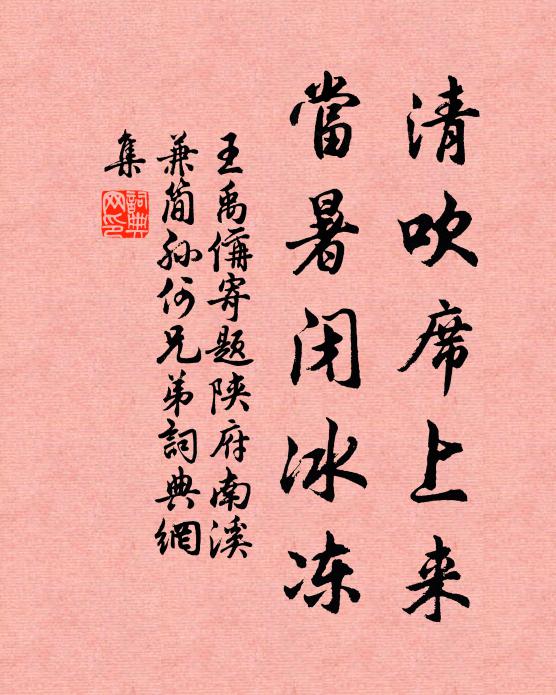 清吹席上来
當暑闭冰冻
王禹偁寄题陕府南溪
兼简孙何兄弟詞典網
集
詞典網印